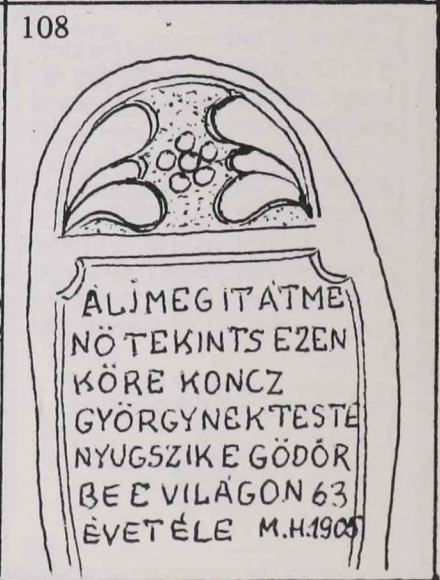 108
ÁLJ MEG IT ÁTME
NÖ TEKINTS EZEN
KÖRE KONCZ
GYÖRGYNEK TESTE
NYUGSZIK E GÖDÖR
BE E VILÁGON 63
ÉVET ÉLE M.H.1905